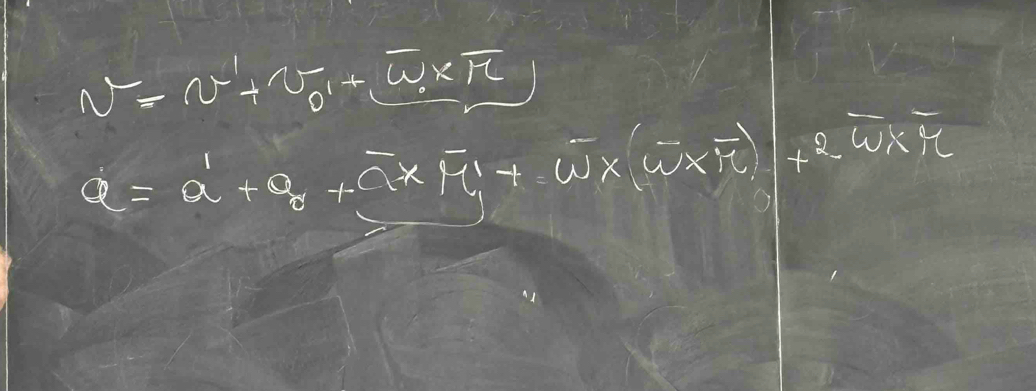 v = v' + v_{o'} + \overline{ω} × \overline{r}
a = a' + a_{o'} + \overline{α} × \overline{r}' + \overline{ω} × (\overline{ω} × \overline{r}) + 2 \overline{ω} × \overline{r}